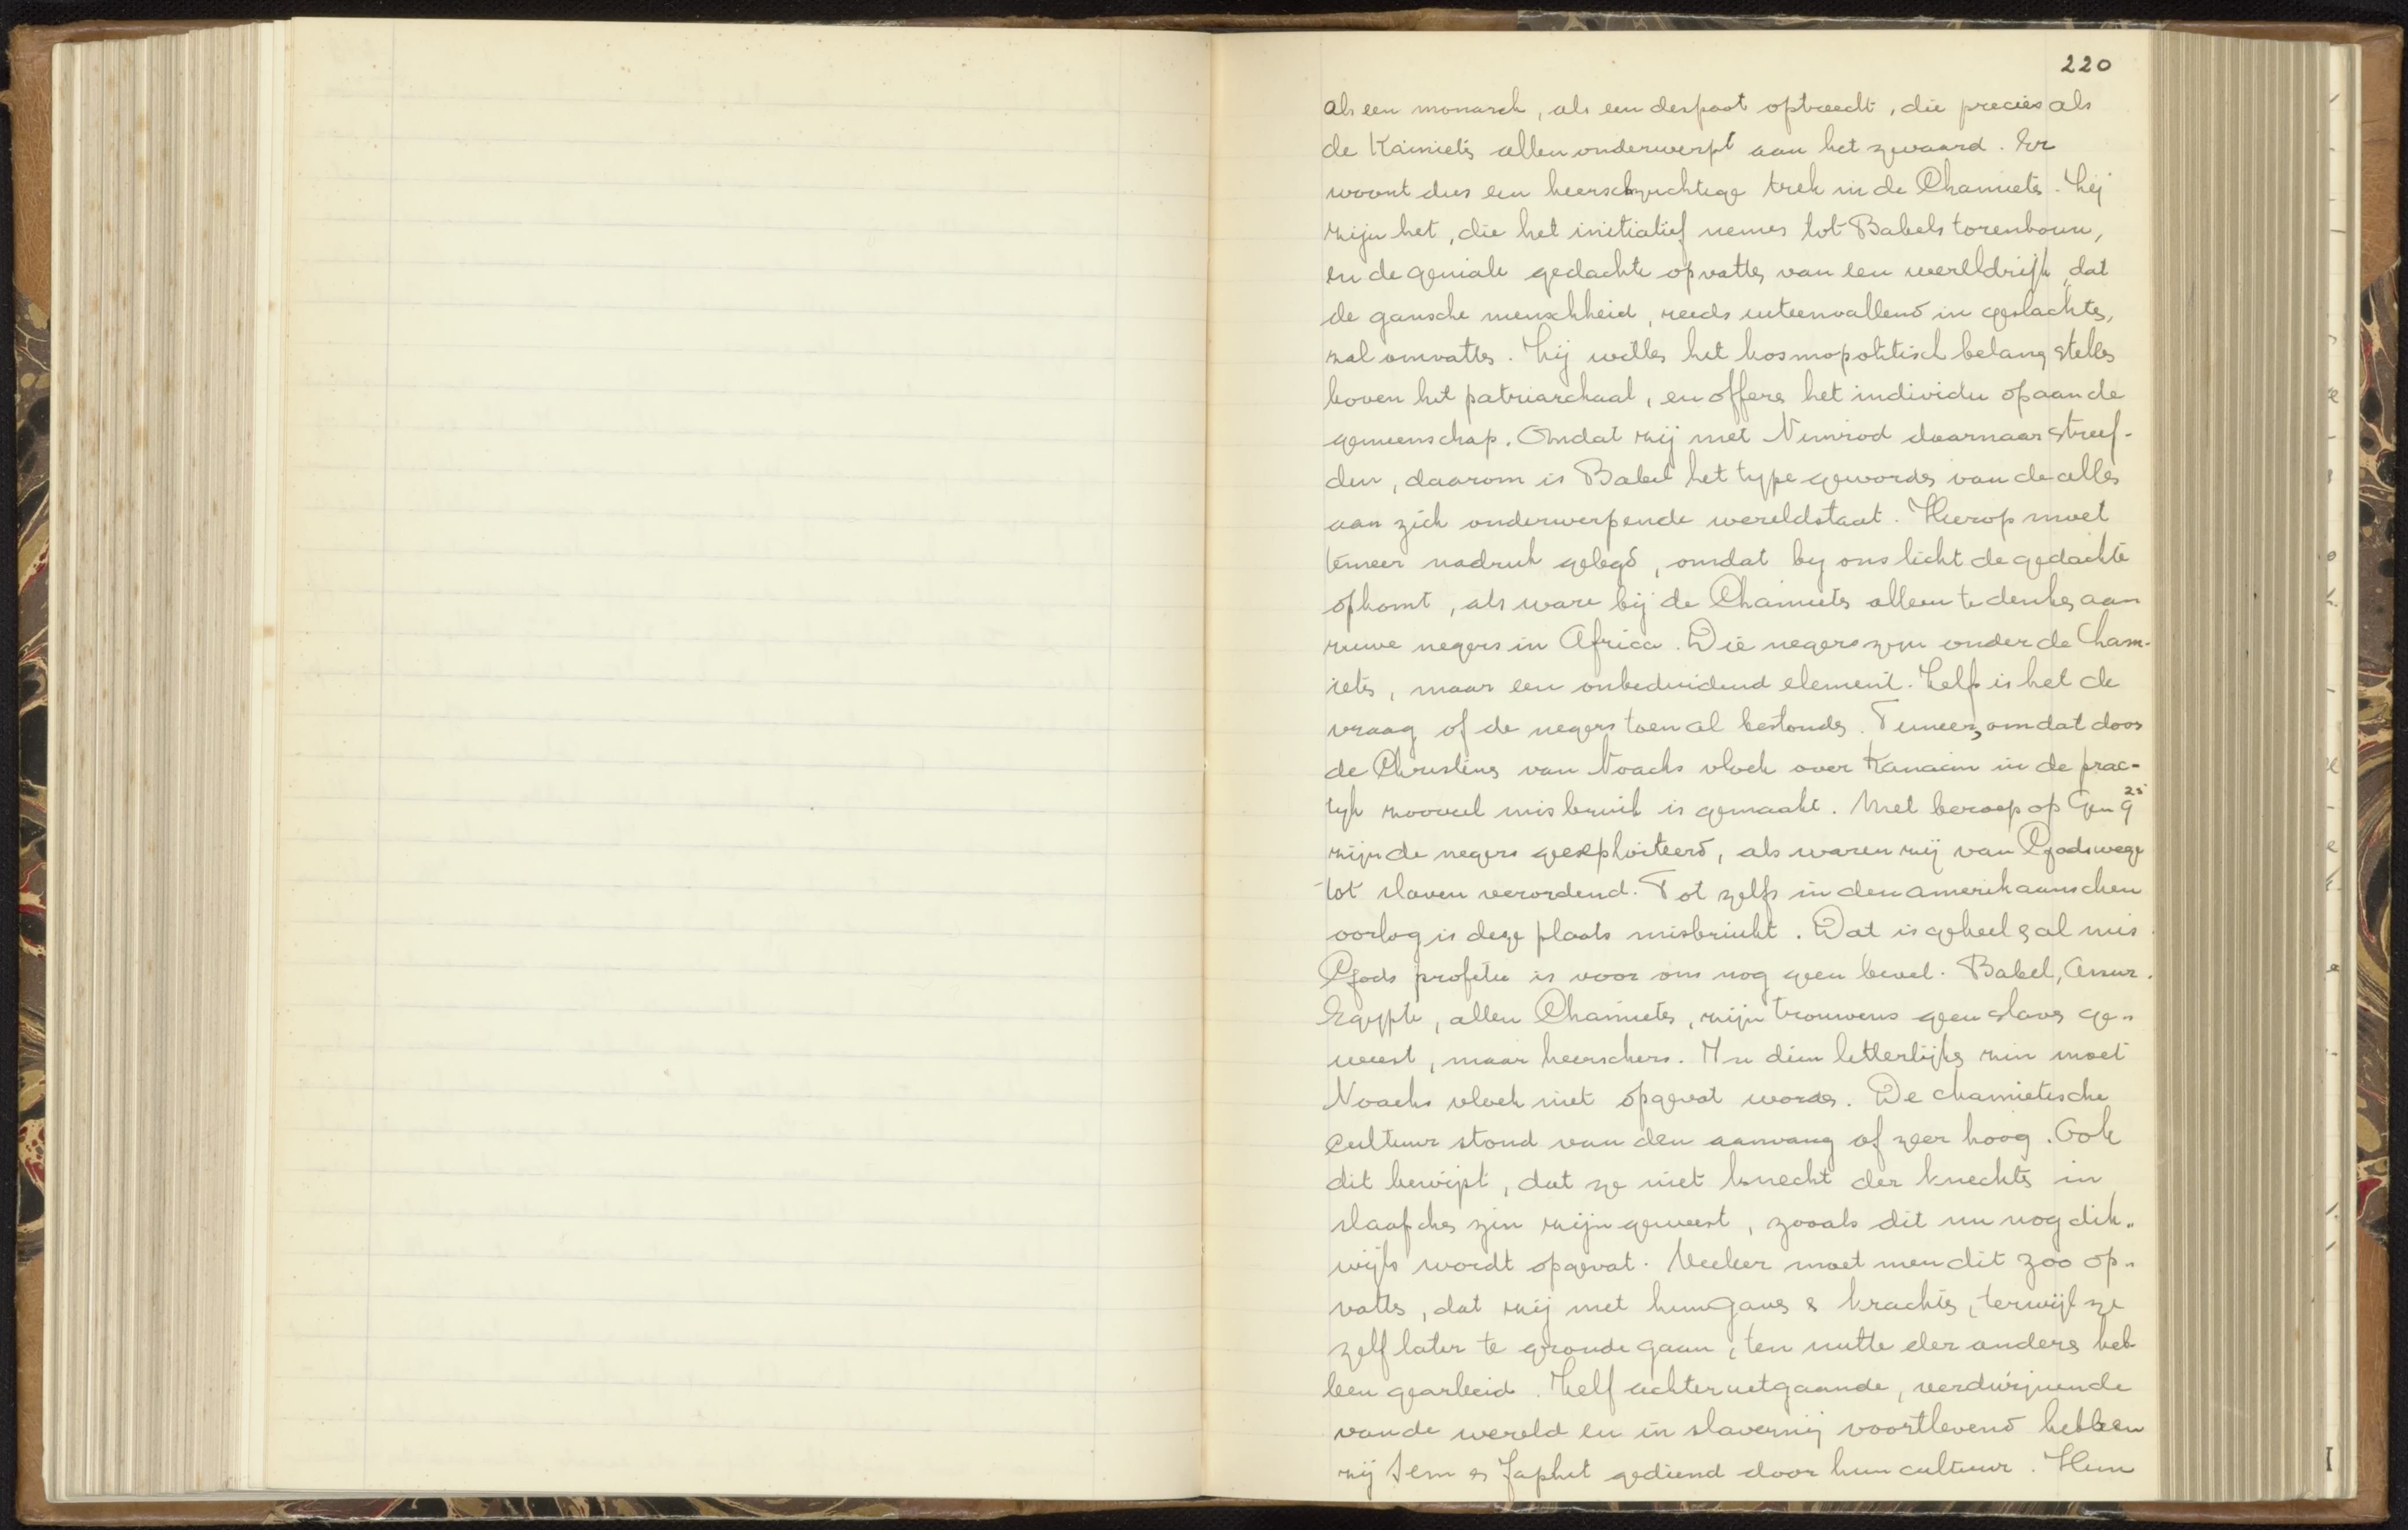 220
als een monarch, als een despoot optreedt, die precies als
de Kainietes allen onderwerpt aan het zwaard. Er
woont dus een heerschzuchtige trek in de Chamieten. Zij
zijn het, die het initiatief nemen tot Babels torenbouw,
en de geniale gedachte opvatten van een wereldrijk, dat
de gansche menschheid, reeds uiteenvallend in geslachten,
zal omvatten. Zij willen het kosmopolitisch belang stellen
boven het patriarchaal, en offeren het individu op aan de
gemeenschap. Omdat zij met Nimrod daarnaar streef-
den, daarom is Babel het type geworden van de alles
aan zich onderwerpende wereldstaat. Hierop moet
temeer nadruk gelegd, omdat by ons licht de gedachte
opkomt, als ware bij de Chamieten alleen te denken aan
ruwe negers in Africa. Die negers zyn onder de Cham-
ieten, maar een onbeduidend element. Zelfs is het de
vraag of de negers toen al bestonden. Temeer, omdat door
de Christenen van Noachs vloek over Kanaän in de prac-
tyk zooveel misbruik is gemaakt. Met beroep op Gen 9 25
zijn de negers geexploiteerd, als waren zij van Godswege
tot slaven verordend. Tot zelfs in den amerikaanschen
oorlog is deze plaats misbruikt. Dat is geheel & al mis.
Gods profetie is voor ons nog geen bevel. Babel, Assur.
Egypte, allen Chamieten, zijn trouwens geen slaven ge-
weest, maar heerschers. In dien letterlijken zin moet
Noachs vloek niet opgevat worden. De chamietische
Cultuur stond van den aanvang af zeer hoog. Ook
dit bewijst, dat ze niet knecht der knechten in
slaafschen zin zijn geweest, zooals dit nu nog dik-
wijls wordt opgevat. Veeleer moet men dit zoo op-
vatten, dat zij met hun gaven & krachten, terwijl ze
zelf later te gronde gaan, ten nutte der anderen heb
ben gearbeid. Zelf achteruitgaande, verdwijnende
van de wereld en in slavernij voortlevend hebben
zij Sem en Japhet gediend door hun cultuur. Hun